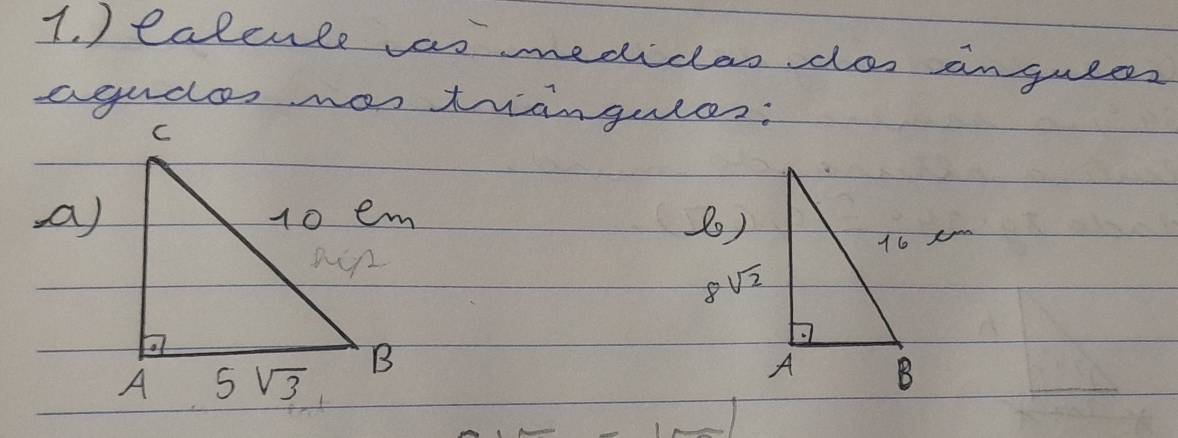 1.) Calcule as medidas dos ângulos
agudos nos triângulos:
C
a)
10 cm
hip
A
5√3
B
b)
16 cm
8√2
A
B